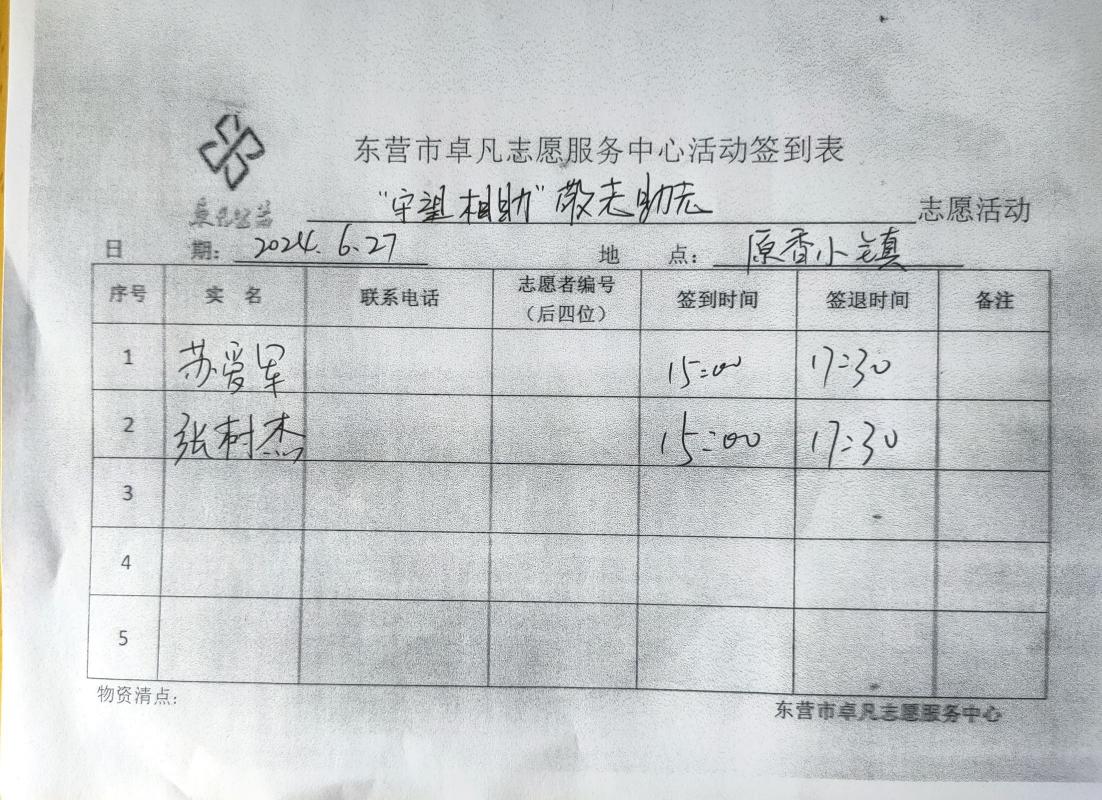 东营市卓凡志愿服务中心活动签到表
卓凡公益
“守望相助”敬老助老 志愿活动
日 期：2024.6.27 地 点：原香小镇
序号 实 名 联系电话 志愿者编号（后四位） 签到时间 签退时间 备注
1 苏爱军 15:00 17:30
2 张树杰 15:00 17:30
3
4
5
物资清点：
东营市卓凡志愿服务中心